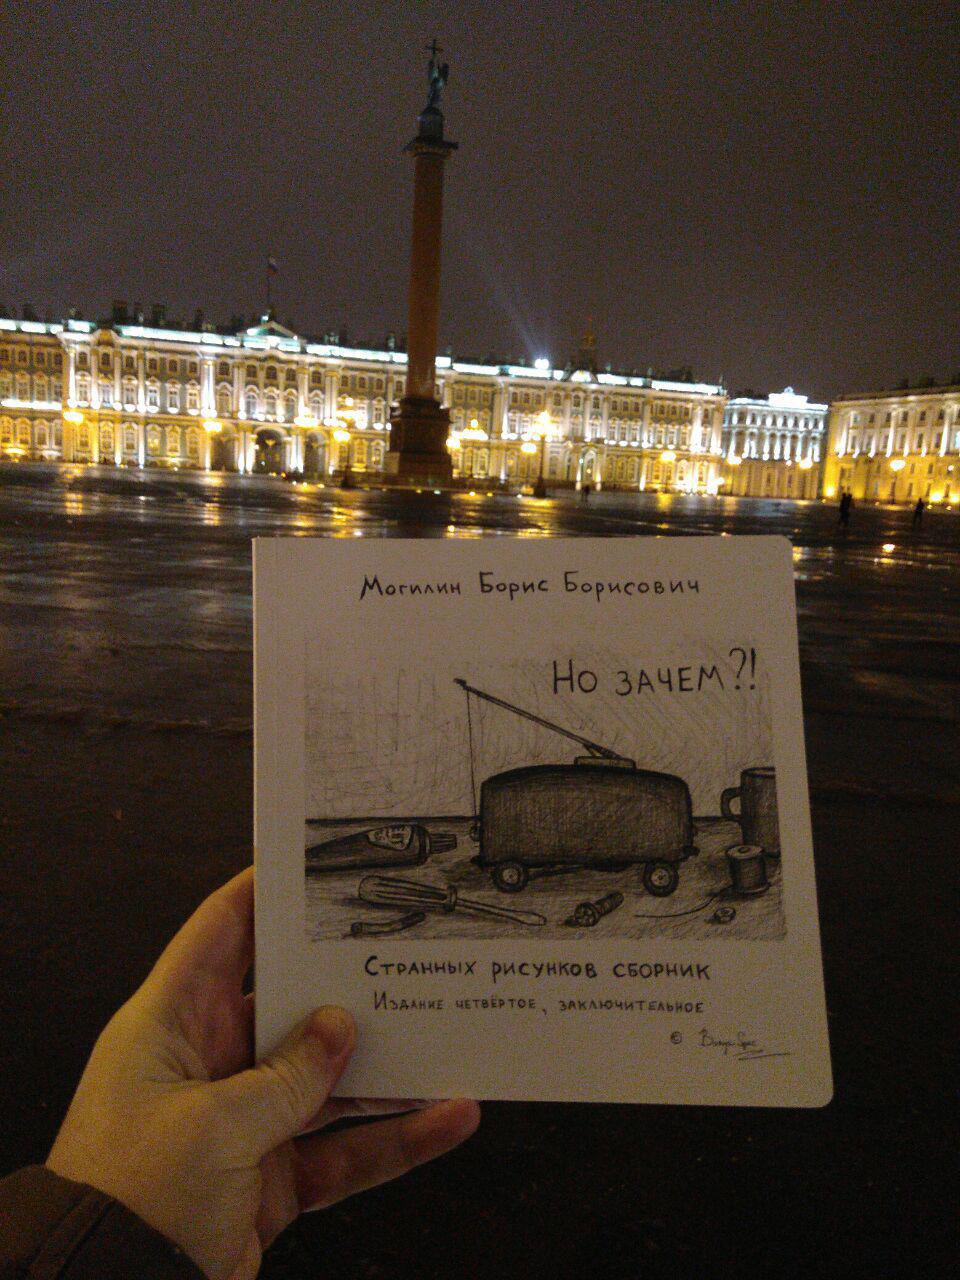 Могилин Борис Борисович
Но зачем?!
Странных рисунков сборник
Издание четвёртое, заключительное
©